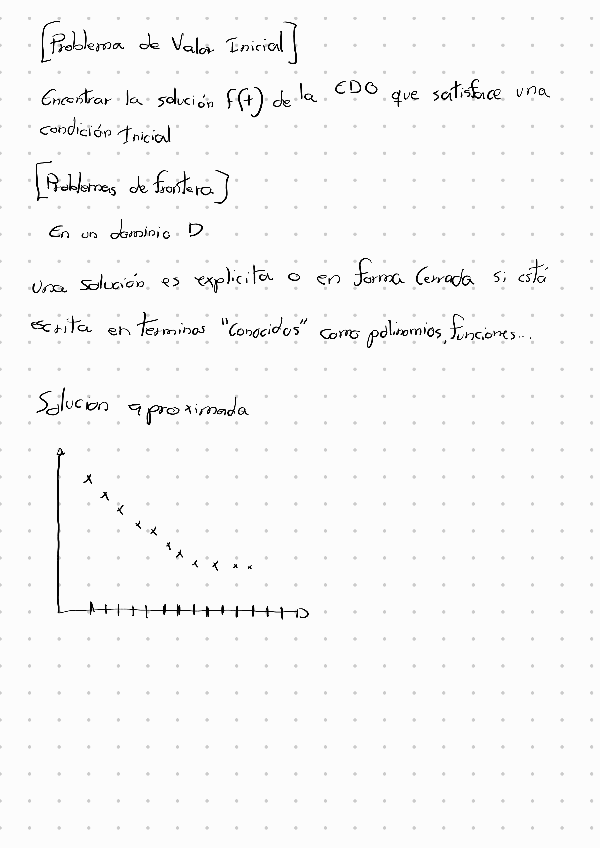 [Problema de Valor Inicial]
Encontrar la solución f(t) de la EDO que satisface una
condición Inicial
[Problemas de frontera]
En un dominio D
Una solución es explicita o en forma Cerrada si está
escrita en terminos "Conocidos" como polinomios, funciones...
Solucion aproximada